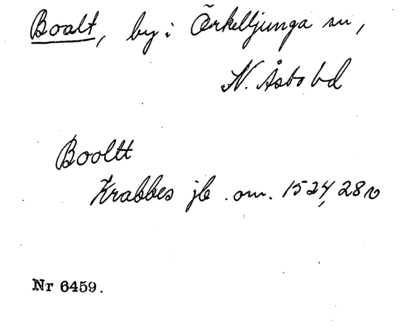 Boalt, by i Örkelljunga sn,
N. Åsbo hd
Booltt
Krabbes jb. om. 1524, 280
Nr 6459.